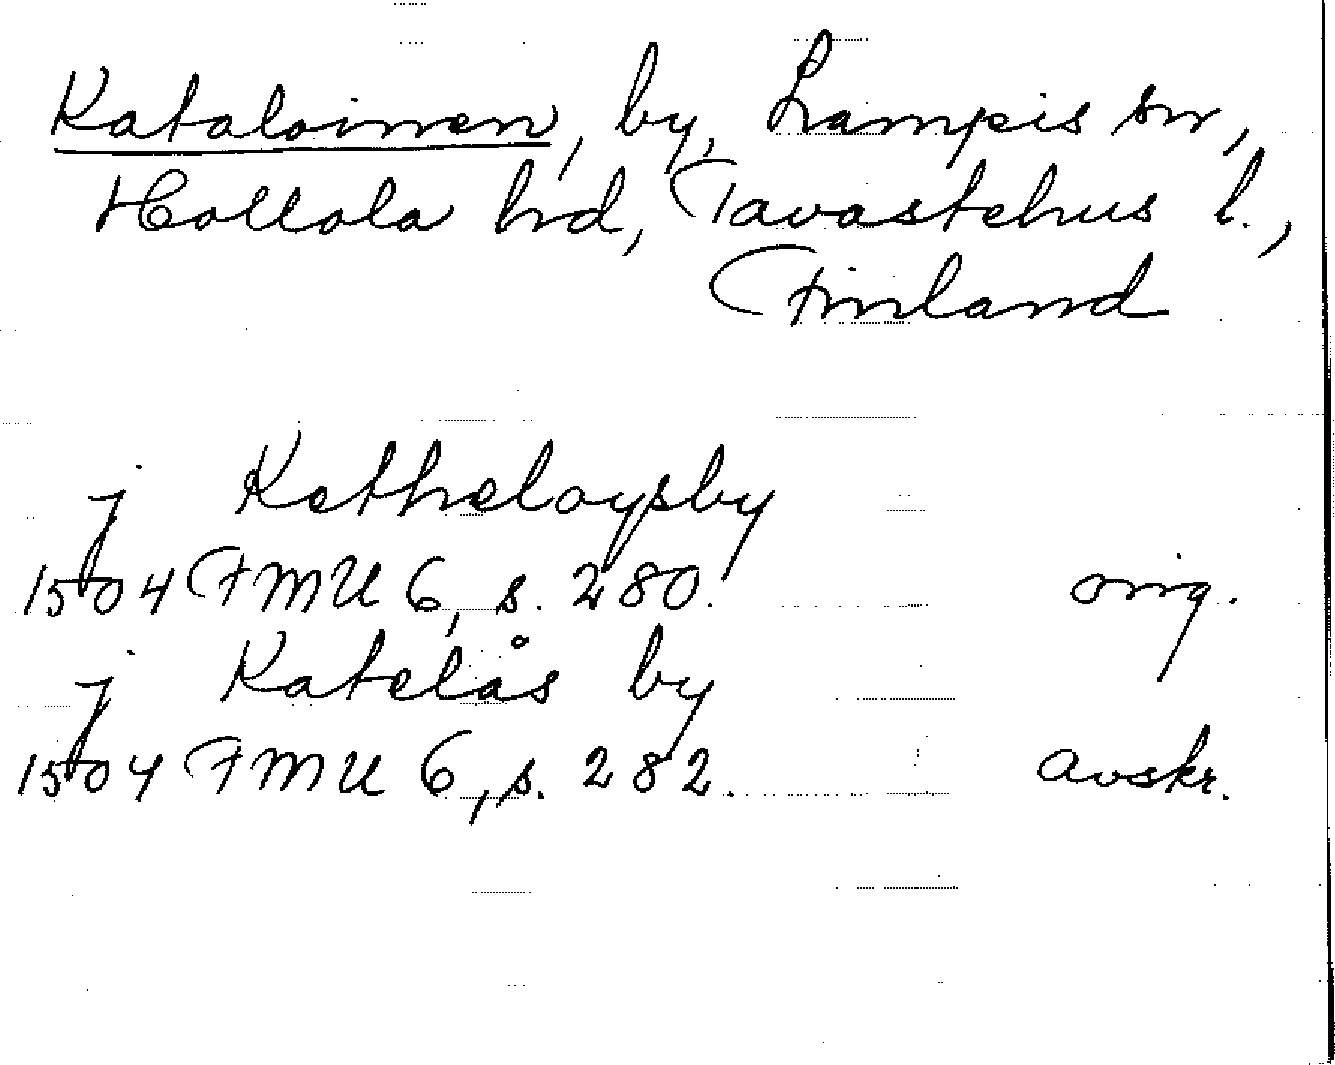 Kataloinen, by, Lampis sn,
Hollola hd, Tavastehus l.,
Finland
j Ketheloysby
1504 FMU 6, s. 280. orig.
j Katelås by
1504 FMU 6, s. 282. avskr.